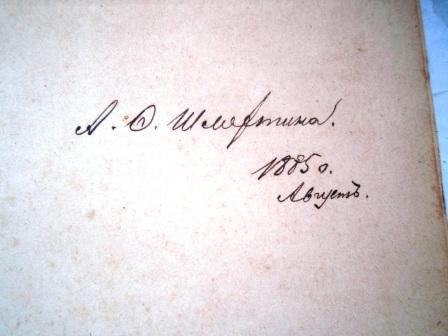 А. О. Шмяткина.
1885 г.
Августъ.